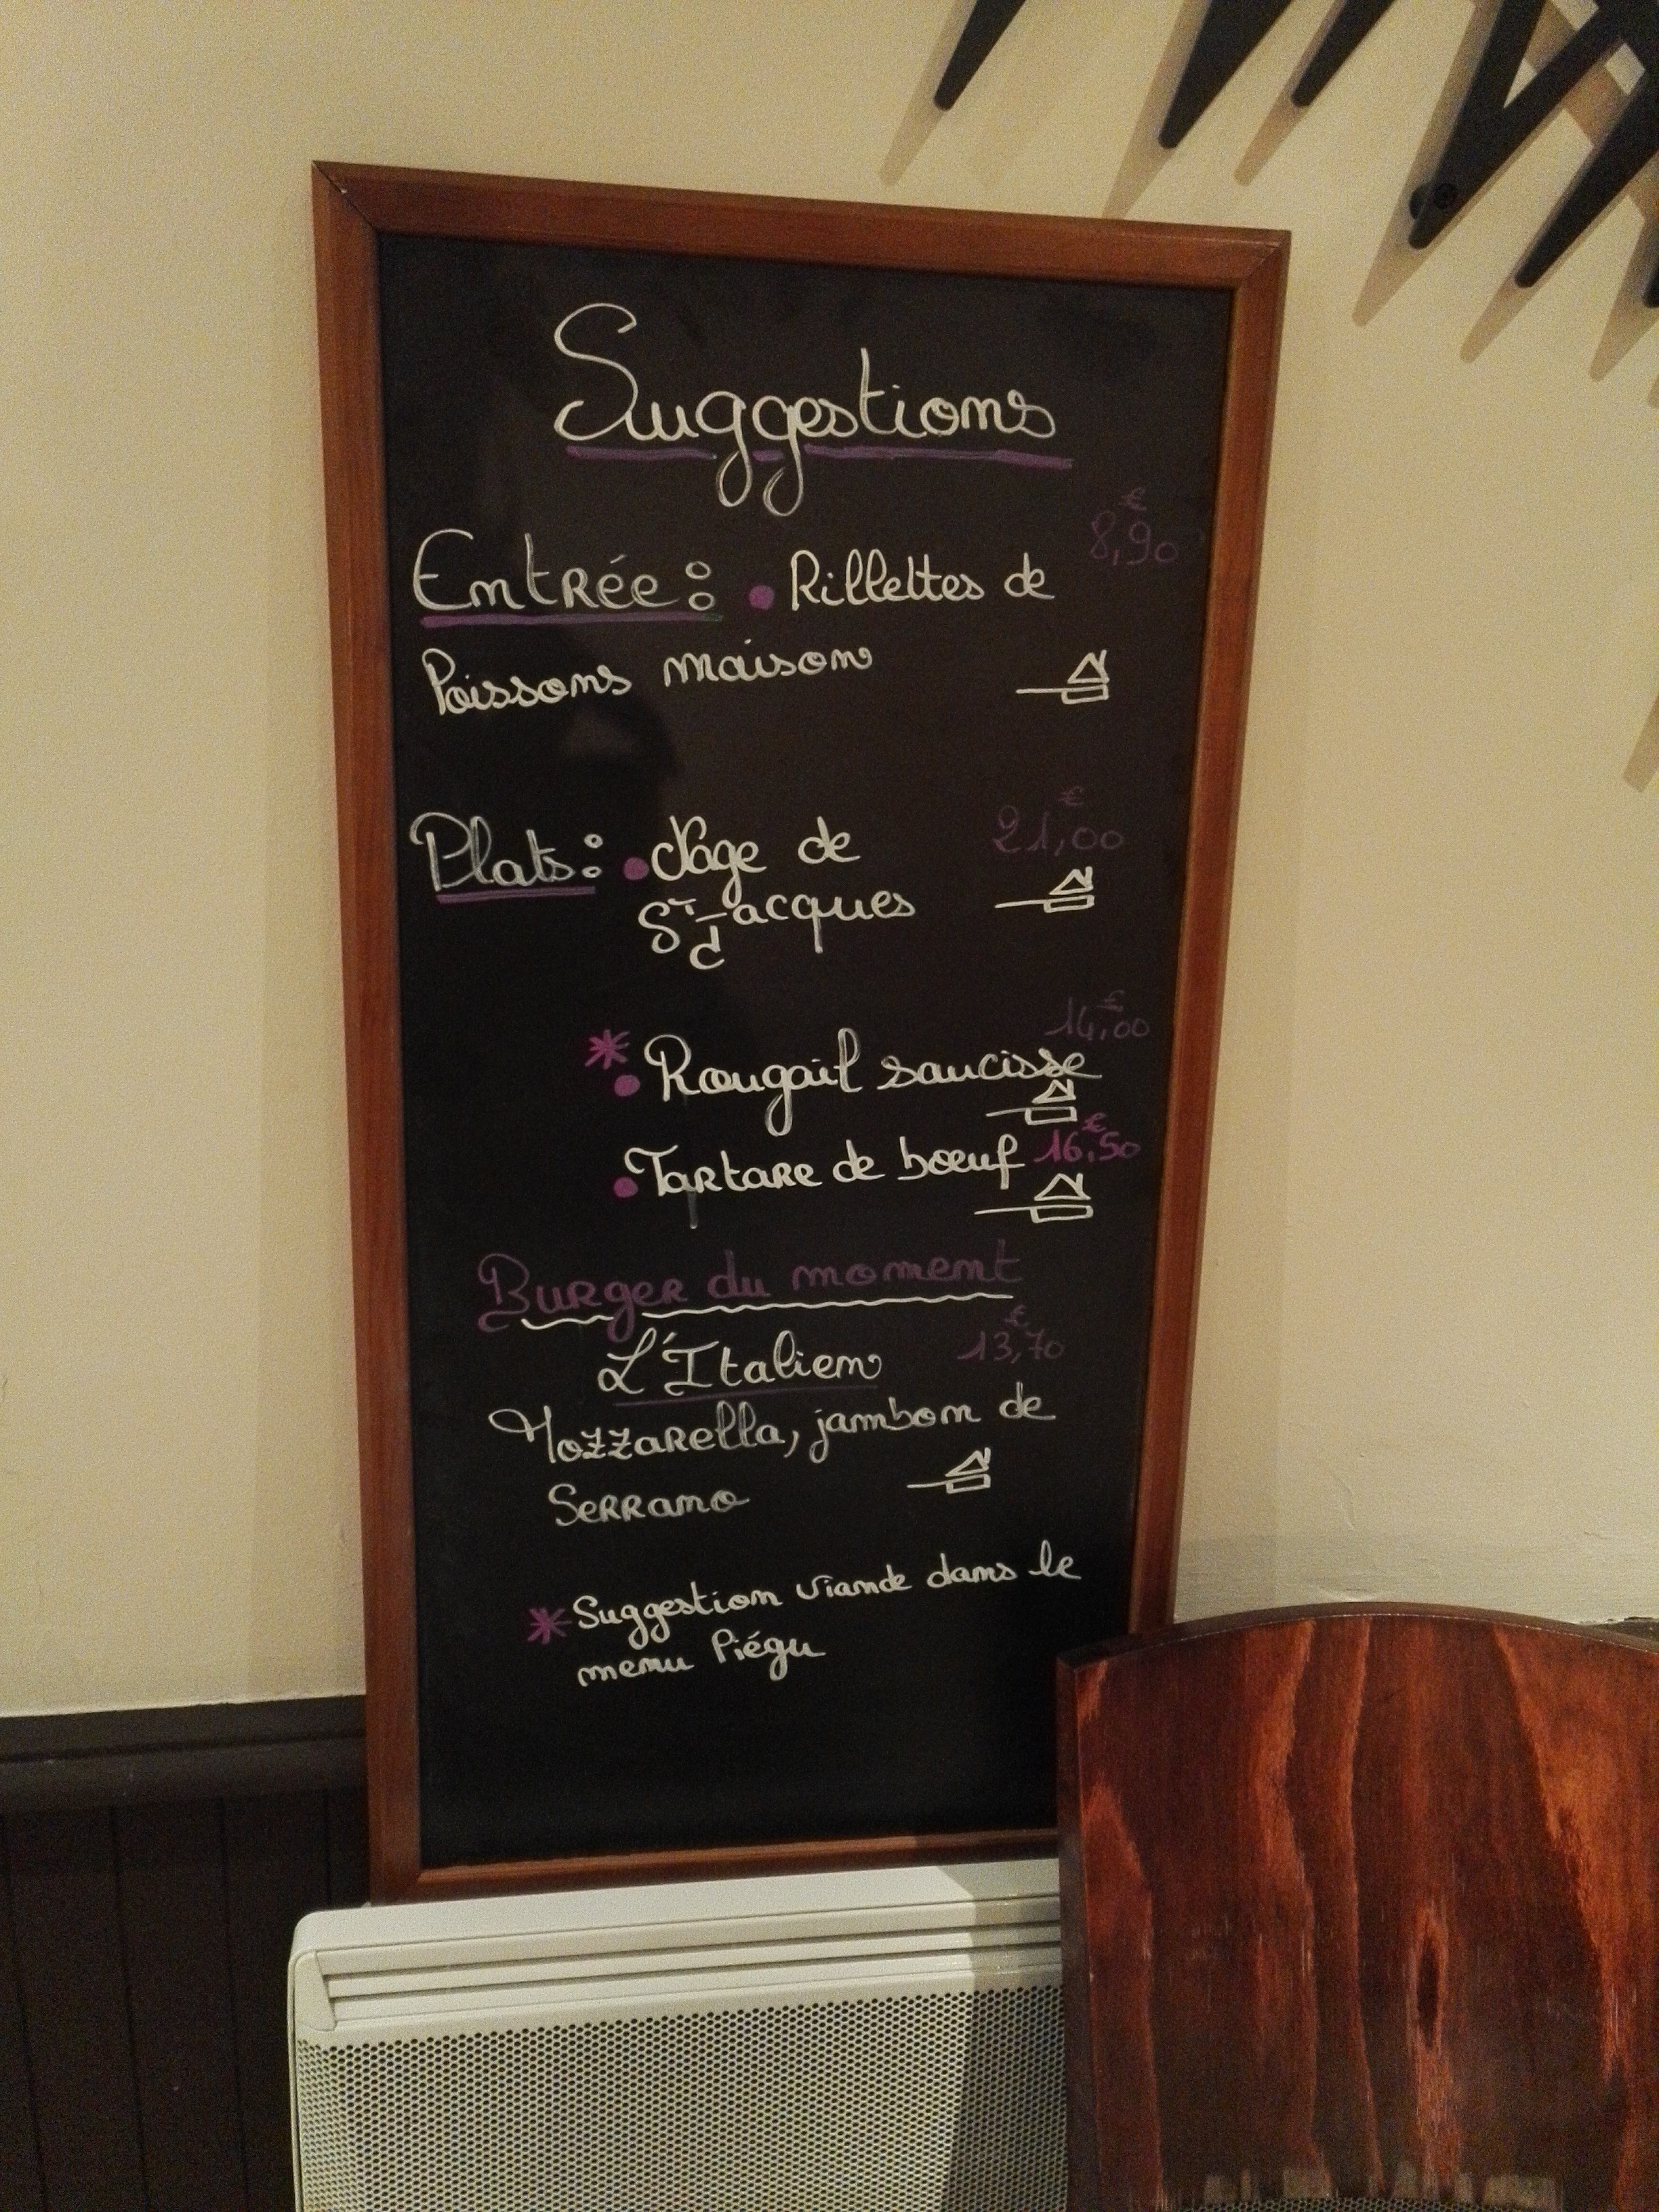 Suggestions
8,90€
Entrée : • Rillettes de
Poissons maison
Plats : • Nage de 21,00€
St-Jacques
14,00€
* • Rougail saucisse
• Tartare de bœuf 16,50€
Burger du moment
L'Italien 13,70€
Mozzarella, jambon de
Serrano
* Suggestion viande dans le
menu Piégu